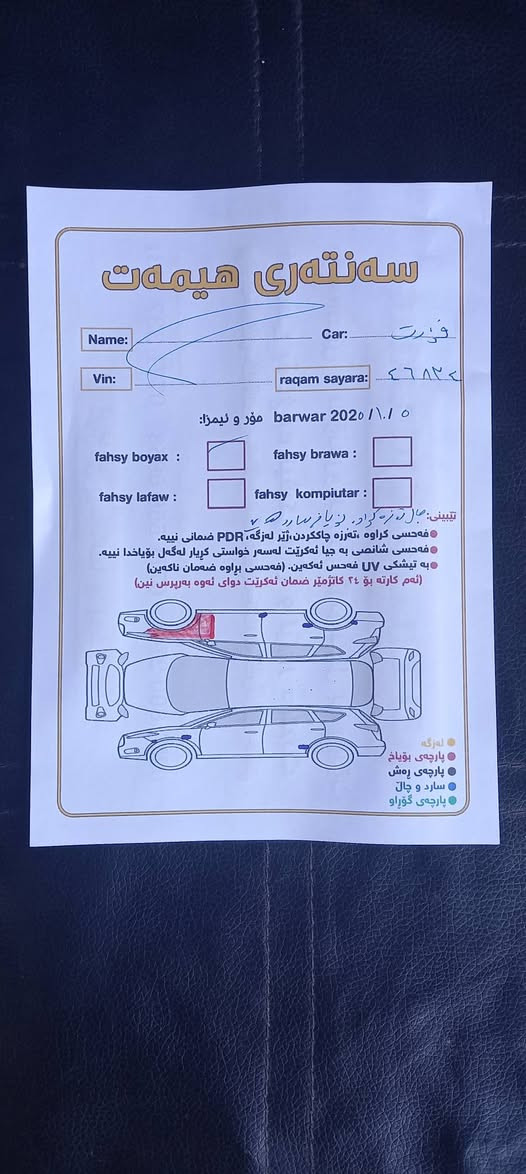 سەنتەری هیمەت
Name: Car:
Vin: raqam sayara: ٤٦٨٢٤
barwar 2025/1/15 مۆر و ئیمزا:
fahsy boyax : fahsy brawa :
fahsy lafaw : fahsy kompiutar :
تێبینی:
فەحسی کراوە ،تەرزە چاککردن،ژێر لەزگە، PDR ضمانی نییە.
فەحسی شانصی بە جیا ئەکرێت لەسەر خواستی کڕیار لەگەل بۆیاخدا نییە.
بە تیشکی UV فەحس ئەکەین. (فەحسی بڕاوە ضەمان ناکەین)
(ئەم کارتە بۆ ٢٤ کاتژمێر ضمان ئەکرێت دوای ئەوە بەرپرس نین)
لەزگە
پارچەی بۆیاخ
پارچەی ڕەش
سارد و چاڵ
پارچەی گۆڕاو